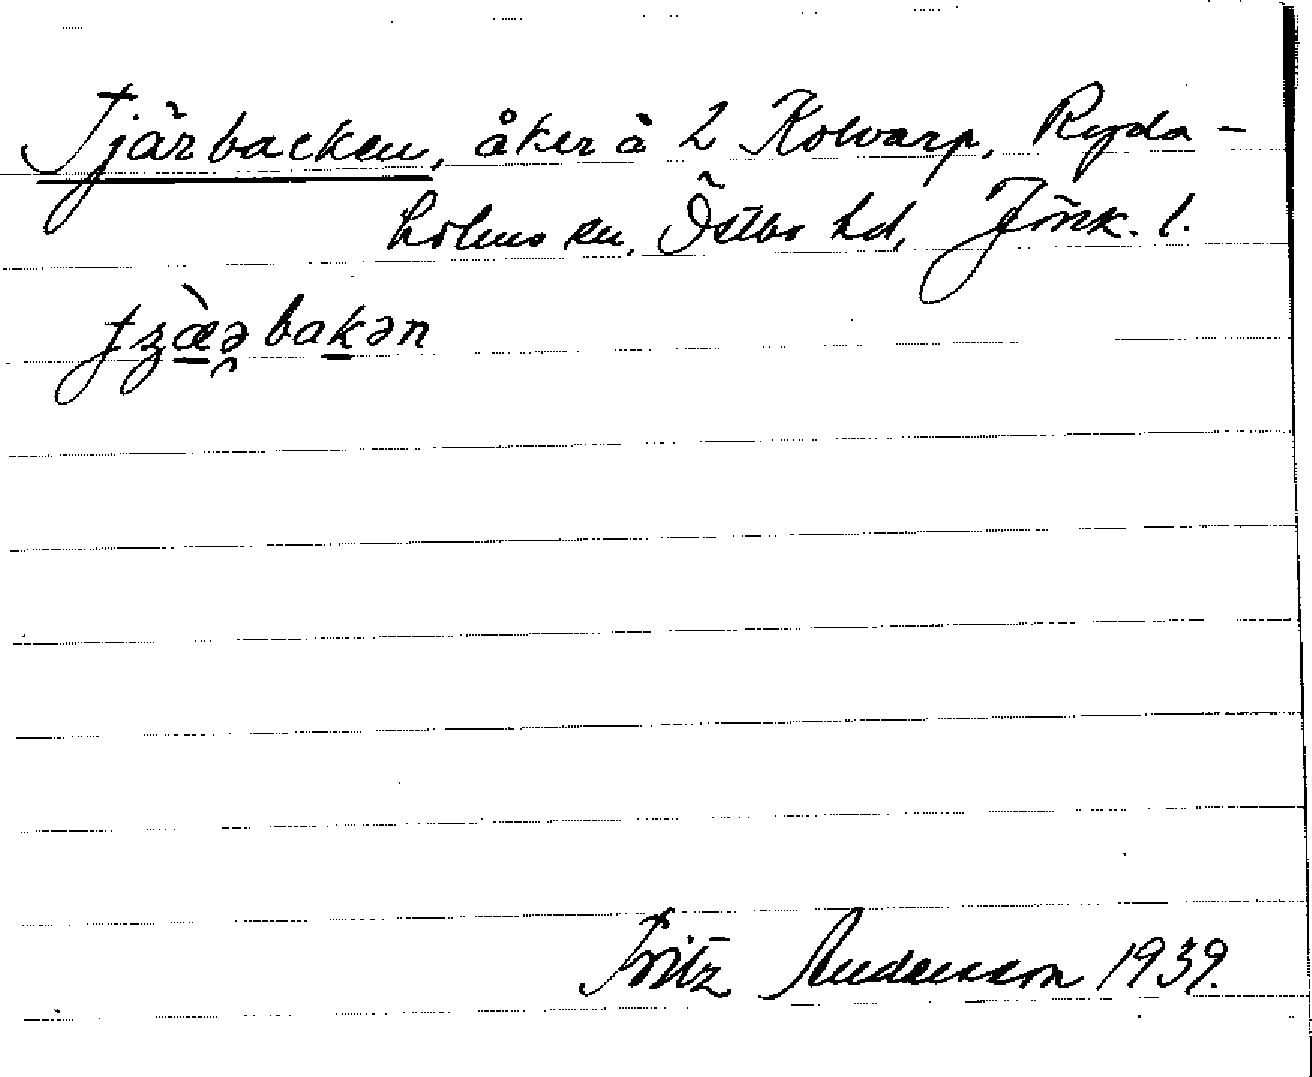 Tjärbacken, åker à 2 Kolvarp, Ryda-
holms sn, Östbo hd, Jönk. l.
bakən
Fritz Andersson 1939.